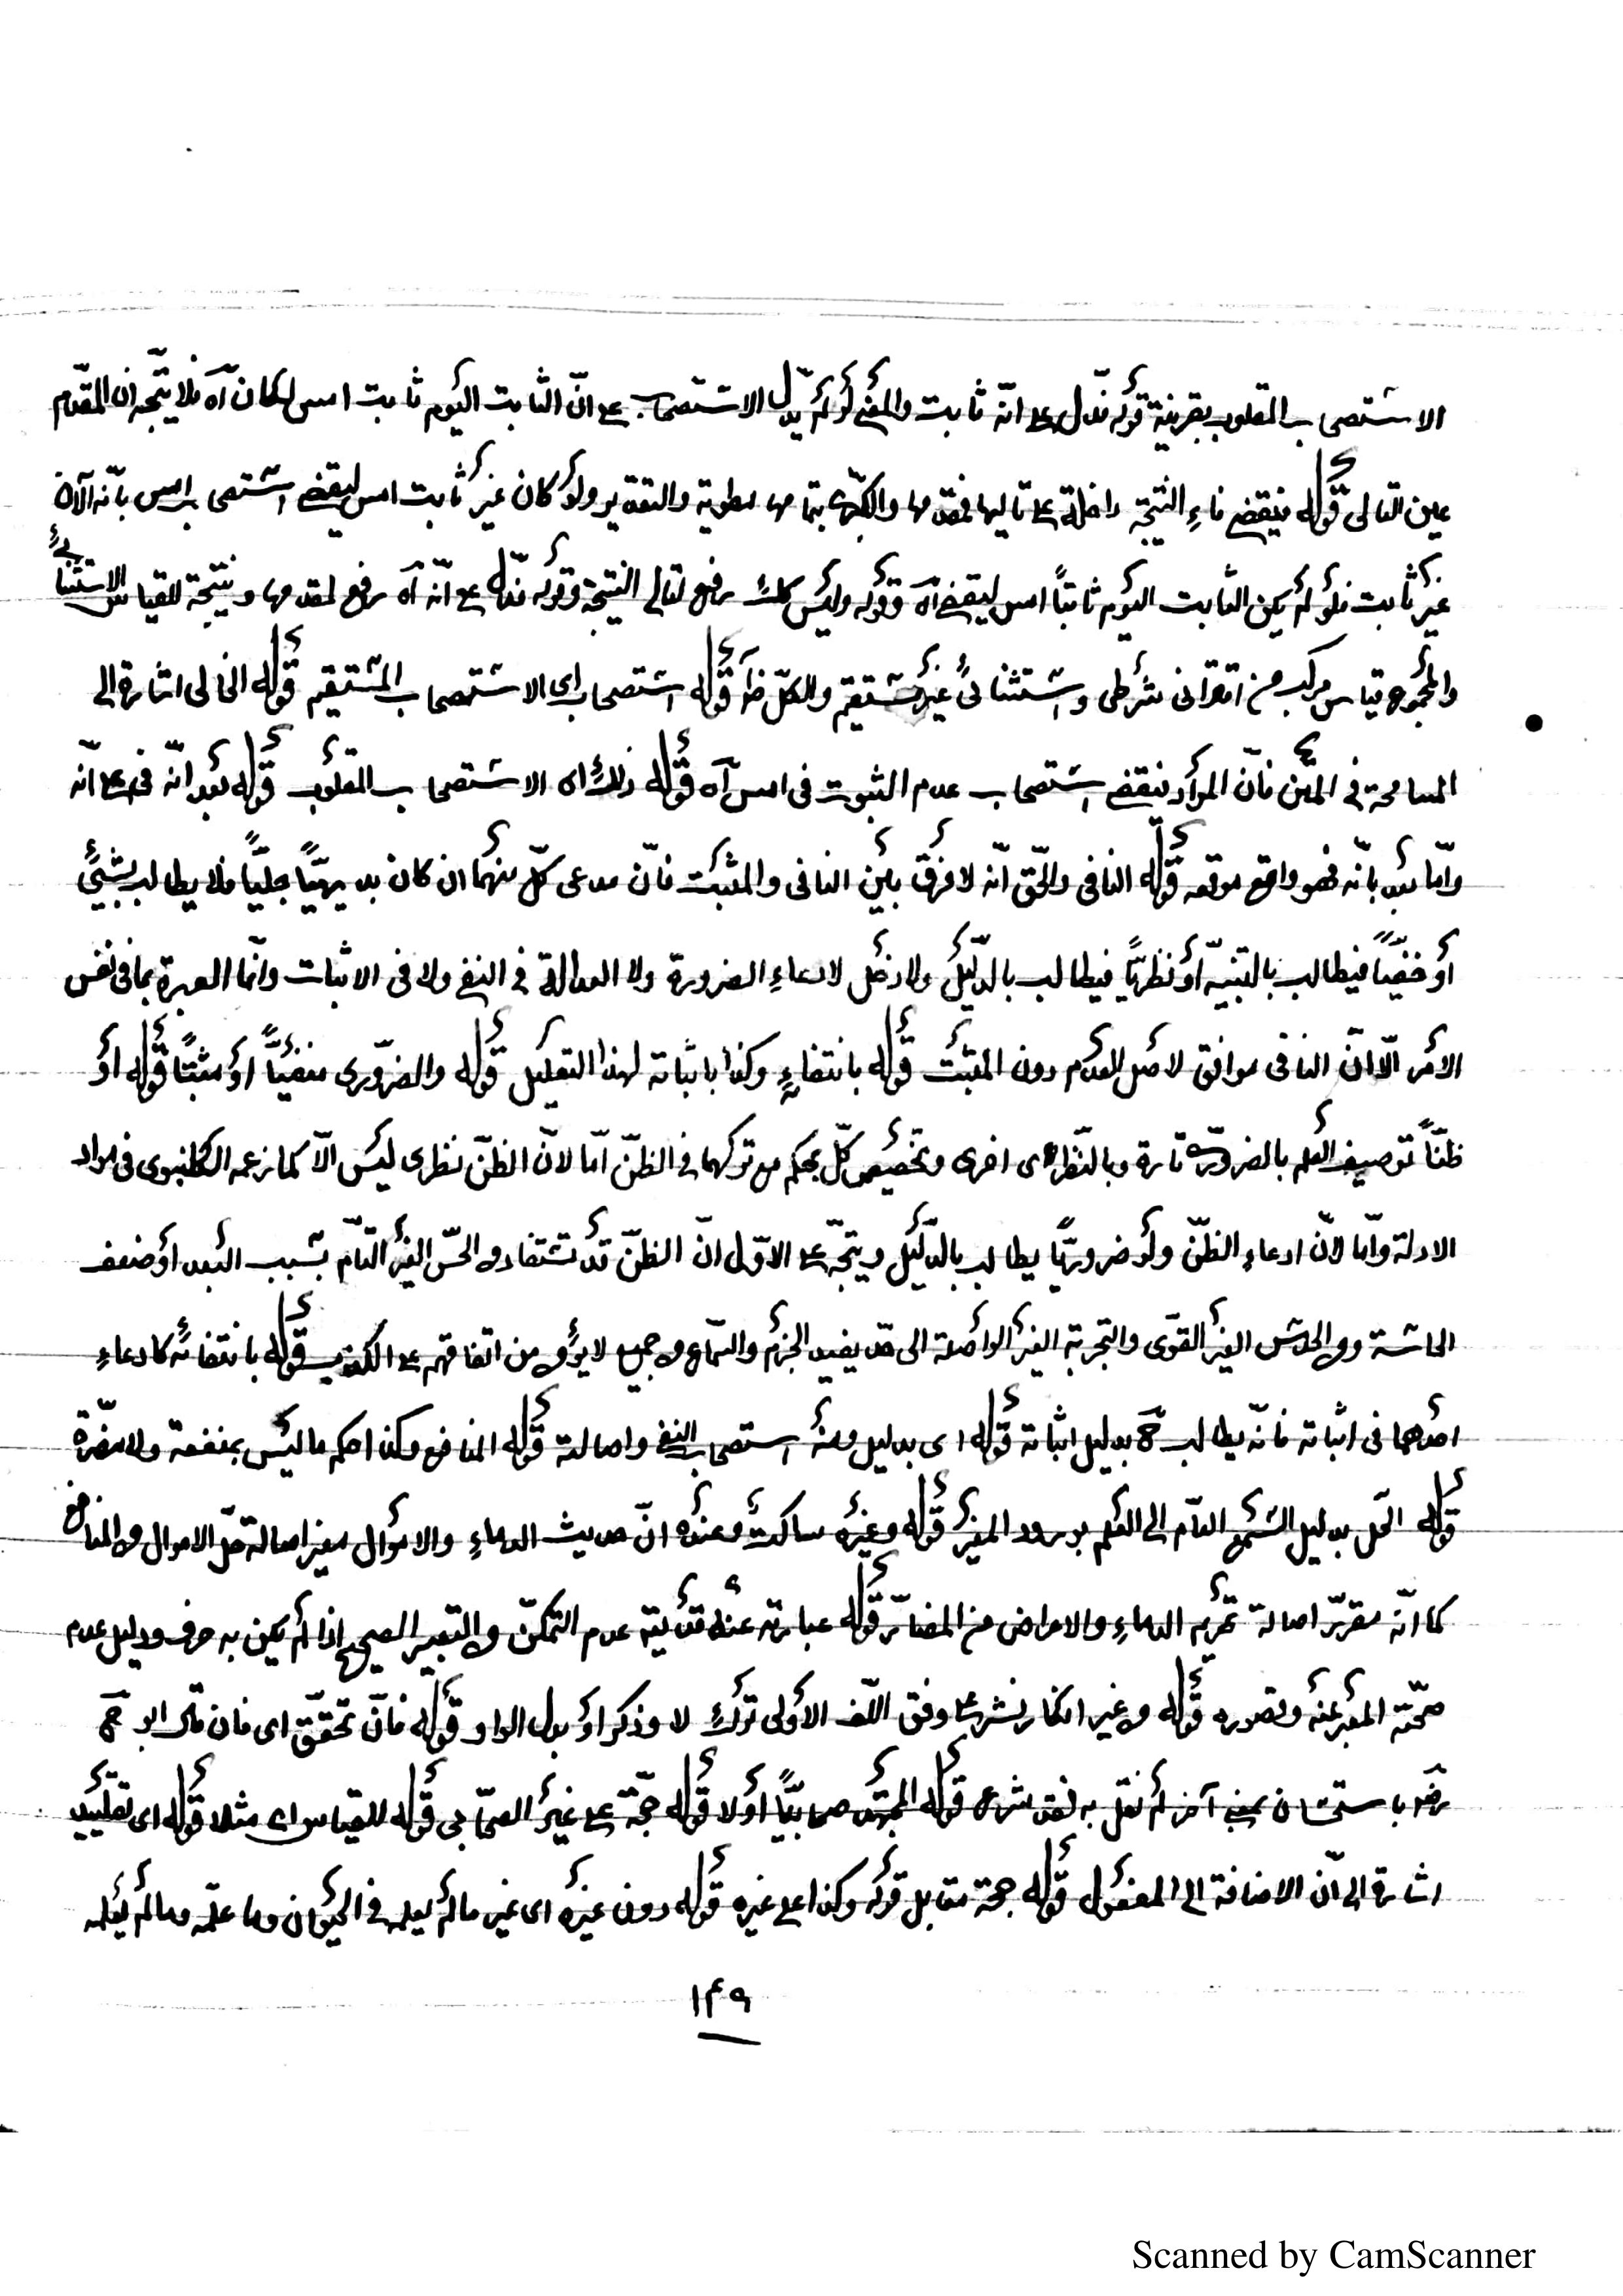 الاستصحاب المقلوب بقرينة قوله فدل على انه ثابت والمعنى لو لم يدل الاستصحاب على انّ الثابت اليوم ثابت امس لكان آه فلا يتجه ان المقدم
عين التالى قوله فيقضى فاء النتيجة داخلة على تاليها فمقدمها والكبرى بتمامها مطوية والتقدير ولو كان غير ثابت امس ليقضى استصحاب امس بانه الآن
غير ثابت فلو لم يكن الثابت اليوم ثابتاً امس ليقضى آه وقوله وليس كذلك رفع لتالى النتيجة وقوله فدل على انّه آه رفع لمقدمها ونتيجة للقياس الاستثنائى
والمجموع قياس مركب من اقترانى شرطى واستثنائىّ غير مستقيم والكلّ قوله استصحاب اى الاستصحاب المستقيم قوله الخالى اشارة الى
المسامحة فى المتن فانّ المراد فيقضى استصحاب عدم الثبوت فى امس آه قوله ذلك اى الاستصحاب المقلوب قوله بعد انّه فى على انّه
وامّا بعد بانّه فهو واقع موقعه قوله النافى والحّق انّه لا فرق بين النافى والمثبت فانّ مدعى كلّ منهما ان كان بديهيّاً جليّاً فلا يطالب بشيئ
أو خفيّاً فيطالب بالتنبيه أو نظريّاً فيطالب بالدّليل ولا دخل لادعاء الضرورة ولا العدالة فى النفى ولا فى الاثبات وانّما العبرة بما فى نفس
الأمر الّا انّ النافى موافق لاصل العدم دون المثبت قوله بانتفاءٍ وكذا باثباته لهذا التعليل قوله والضرورى منفيّاً او مثبتاً قوله او
ظنّاً توصيف العلم بالضرورىّ تارة وبالنّظرى اخرى وتخصيص كلّ بحكم مع تركهما فى الظنّ امّا لانّ الظنّ نظرى ليس الّا كما زعمه الكلنبوى فى مواد
الادلة وامّا لانّ ادعاء الظنّ ولو ضروريّاً يطالب بالدّليل ويتجه على الاوّل انّ الظنّ قد تستفاد من الحسّ الغير التامّ بسبب البعد او ضعف
الحاسّة ومن الحدس الغير القوّى والتجربة الغير الواصلة الى حدّ يفيد الجزم والسّماع من جميع لا يؤمن من اتفاقهم على الكذب قوله بانتفائه كادعاء
احدهما فى اثباته فانّه يطالب ح بدليل اثباته قوله اى بدليل ومنه استصحاب النفى واصالته قوله المنافع وكذا حكم ما ليس بمنفعة ولا مضرّة
قوله الحل بدليل السّمع العامّ الى العلم بورود المغيّر قوله وغيره ساكت وعنده انّ حديث الدماء والاموال مغيّر اصالة حلّ الاموال من المنافع
كما انّه مقرّر اصالة تحريم الدماء والاعراض من المضارّ قوله عبارته عنه قد يتّه عدم التمكّن من التعبير الصحيح اذا لم يكن به حرف ودليل عدم
صحّته المعبر عنه وقصوره قوله من غير انكار نشر على وفق اللّف الاولى ترك لا وذكر او بدل الواو قوله فانّ تحقّق اى فان قال ابو ح
رضى باستحسان بمعنى آخر لم نقل به فقد شرع قوله المجتهد صحابيّاً أو لا قوله حجّة على غير الصحّابى قوله للقياس اى مثلا قوله اى تقليد
اشارة الى انّ الاضافة الى المفعول قوله حجة مقابل قوله وكذا على غيره قوله دون غيره اى غير ما لم يعلم فى الحيوان وما علمه وما لم يعلمه
١٤٩
Scanned by CamScanner